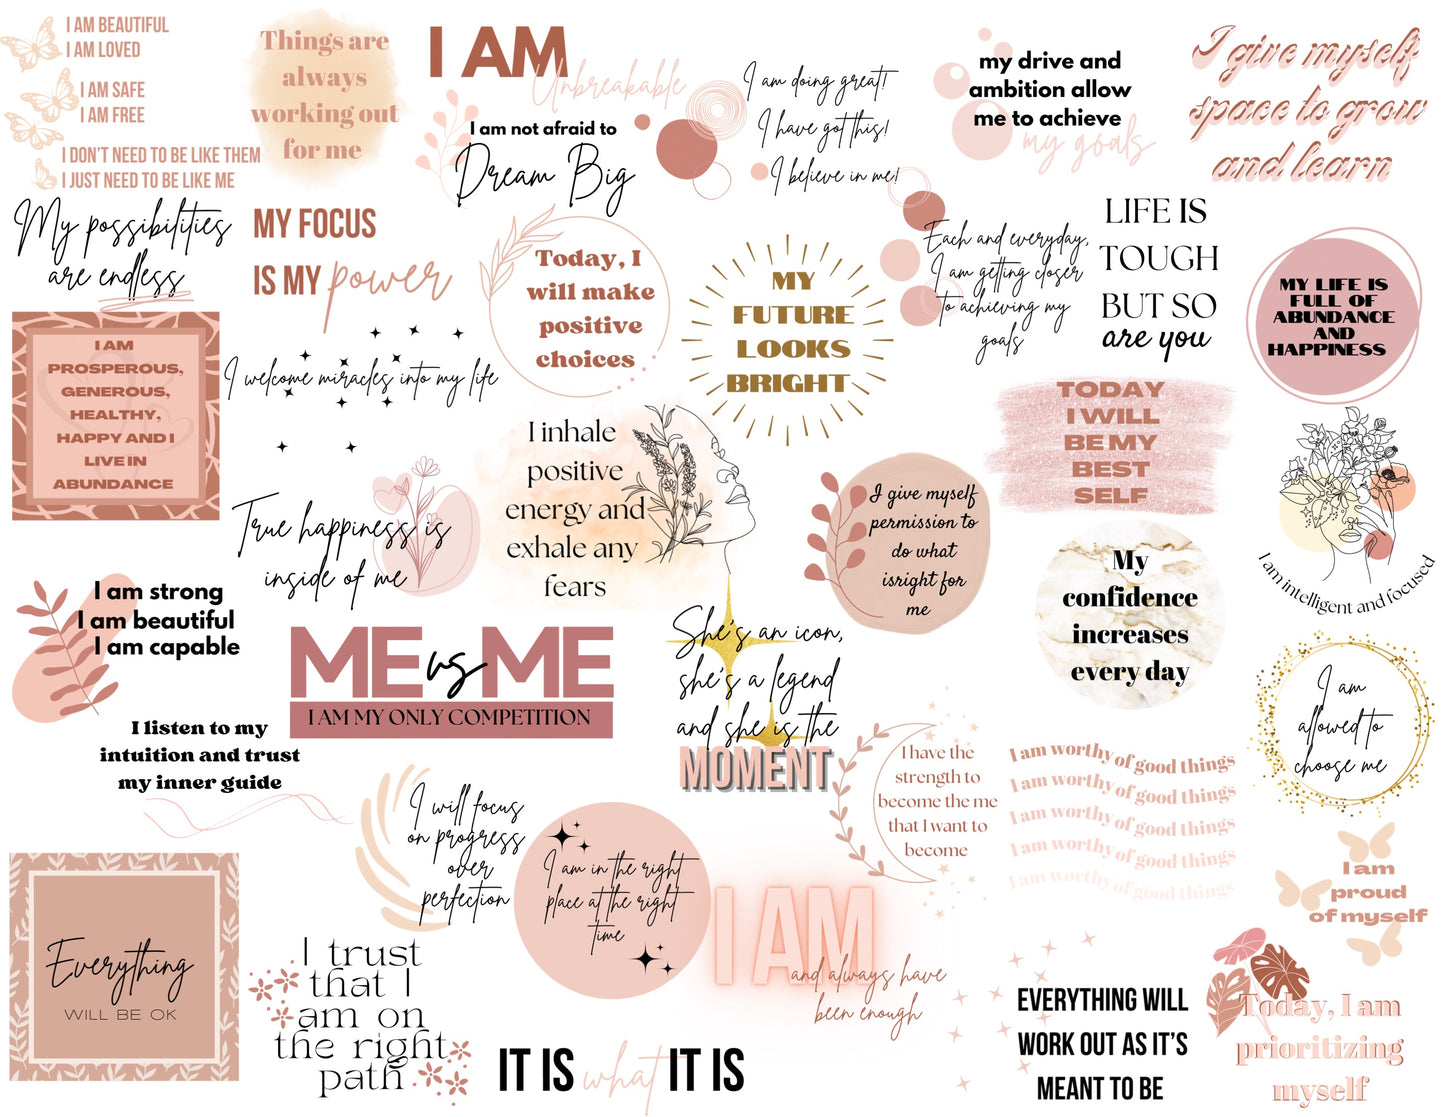 I AM BEAUTIFUL
I AM LOVED
I AM SAFE
I AM FREE
I DON'T NEED TO BE LIKE THEM
I JUST NEED TO BE LIKE ME
Things are
always
working out
for me
I AM
Unbreakable
I am not afraid to
Dream Big
I am doing great!
I have got this!
I believe in me!
my drive and
ambition allow
me to achieve
my goals
I give myself
space to grow
and learn
My possibilities
are endless
MY FOCUS
IS MY power
Today, I
will make
positive
choices
MY
FUTURE
LOOKS
BRIGHT
Each and everyday,
I am getting closer
to achieving my
goals
LIFE IS
TOUGH
BUT SO
are you
MY LIFE IS
FULL OF
ABUNDANCE
AND
HAPPINESS
I AM
PROSPEROUS,
GENEROUS,
HEALTHY,
HAPPY AND I
LIVE IN
ABUNDANCE
I welcome miracles into my life
I inhale
positive
energy and
exhale any
fears
TODAY
I WILL
BE MY
BEST
SELF
True happiness is
inside of me
I give myself
permission to
do what
isright for
me
My
confidence
increases
every day
I am intelligent and focused
I am strong
I am beautiful
I am capable
ME vs ME
I AM MY ONLY COMPETITION
She's an icon,
she's a legend
and she is the
MOMENT
I am
allowed to
choose me
I listen to my
intuition and trust
my inner guide
I will focus
on progress
over
perfection
I am in the right
place at the right
time
I have the
strength to
become the me
that I want to
become
I am worthy of good things
I am worthy of good things
I am worthy of good things
I am worthy of good things
I am worthy of good things
I am
proud
of myself
Everything
WILL BE OK
I trust
that I
am on
the right
path
I AM
and always have
been enough
IT IS what IT IS
EVERYTHING WILL
WORK OUT AS IT'S
MEANT TO BE
Today, I am
prioritizing
myself